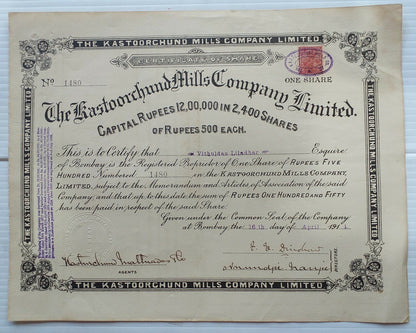 THE KASTOORCHUND MILLS COMPANY LIMITED
CERTIFICATE OF SHARE
No 1480
ONE SHARE
The Kastoorchund Mills Company Limited.
CAPITAL RUPEES 12,00,000 IN 2,400 SHARES
OF RUPEES 500 EACH.
This is to Certify that Vithuldas Liladhar Esquire
of Bombay is the Registered Proprietor of One Share of Rupees Five
Hundred Numbered 1480 in the KASTOORCHUND MILLS COMPANY,
LIMITED, subject to the Memorandum and Articles of Association of the said
Company; and that up to this date the sum of RUPEES ONE HUNDRED AND FIFTY
has been paid in respect of the said Share.
Given under the Common Seal of the Company
at Bombay the 16th day of April 1914
AGENTS
DIRECTORS
THE KASTOORCHUND MILLS COMPANY LIMITED
THE KASTOORCHUND MILLS COMPANY LIMITED
THE KASTOORCHUND MILLS COMPANY LIMITED